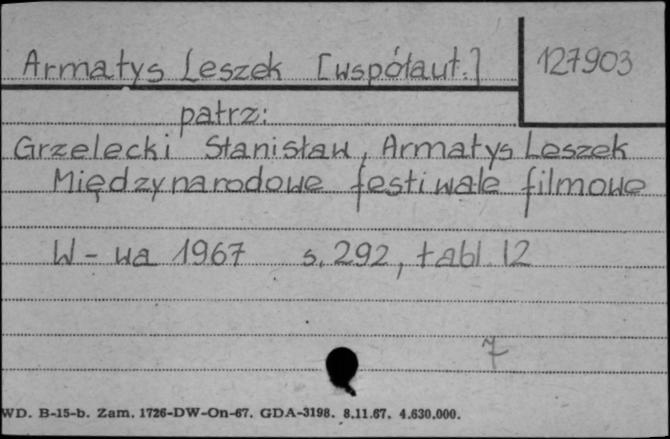 Armatys Leszek [współaut.] 127903
patrz:
Grzelecki Stanisław, Armatys Leszek
Międzynarodowe festiwale filmowe
W-wa 1967 s. 292, tabl. 12
7
WD. B-15-b. Zam. 1726-DW-On-67. GDA-3198. 8.11.67. 4.630.000.